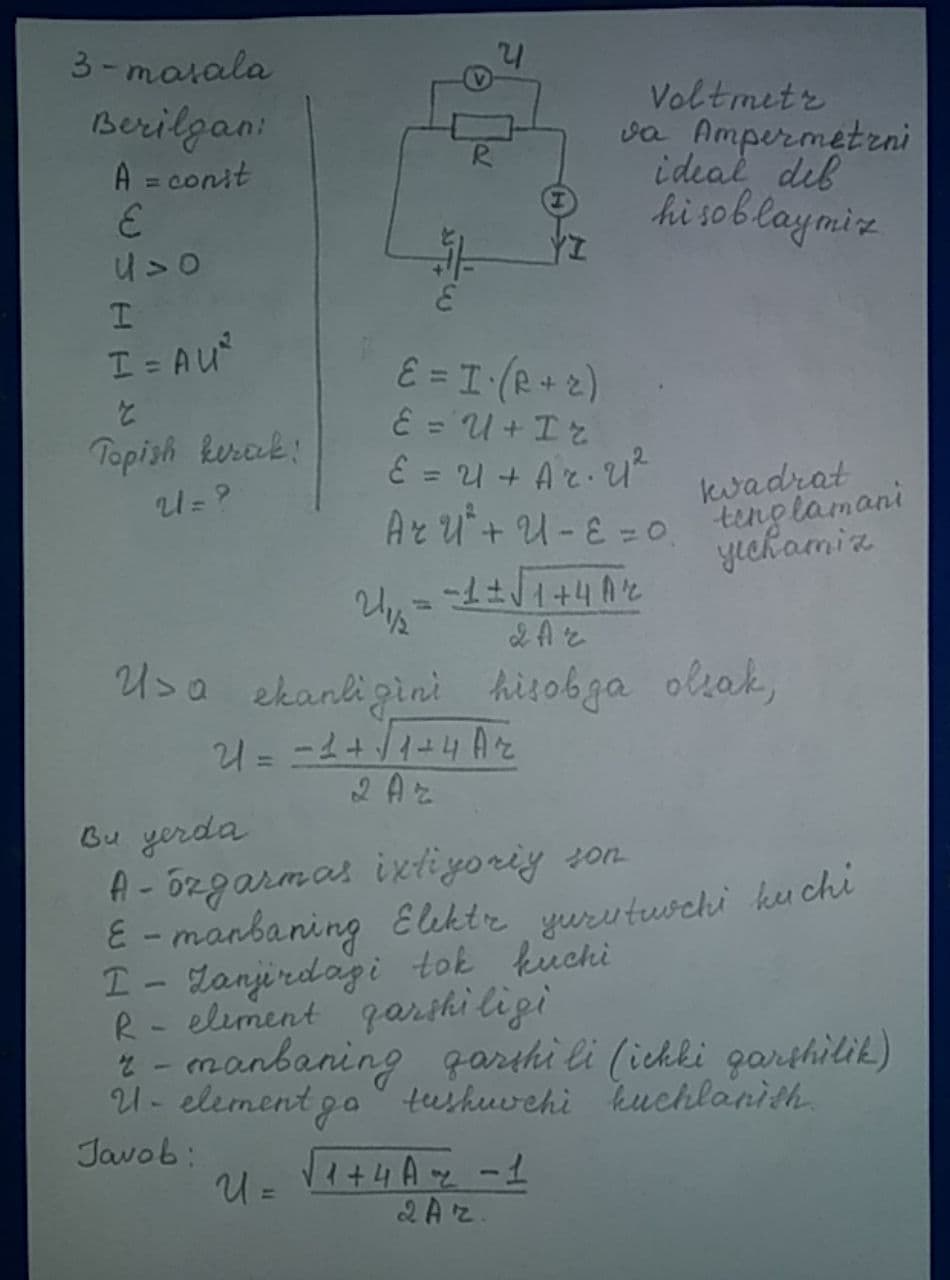 3-masala
Berilgan:
A = const
Ɛ
U > 0
I
I = AU²
r
Topish kerak:
U = ?
U
V
R
I
I
r
+ -
Ɛ
Voltmetr
va Ampermetrni
ideal deb
hisoblaymiz
Ɛ = I·(R + r)
Ɛ = U + Ir
Ɛ = U + Ar·U²
ArU² + U - Ɛ = 0.
kvadrat
tenglamani
yechamiz
U₁/₂ = (-1 ± √(1+4Ar))/(2Ar)
U>0 ekanligini hisobga olsak,
U = (-1 + √(1+4Ar))/(2Ar)
Bu yerda
A - ōzgarmas ixtiyoriy son
Ɛ - manbaning Elektr yurutuvchi kuchi
I - Zanjirdagi tok kuchi
R - element qarshiligi
r - manbaning qarshili (ichki qarshilik)
U - elementga tushuvchi kuchlanish.
Javob:
U = (√(1+4Ar) - 1)/(2Ar).